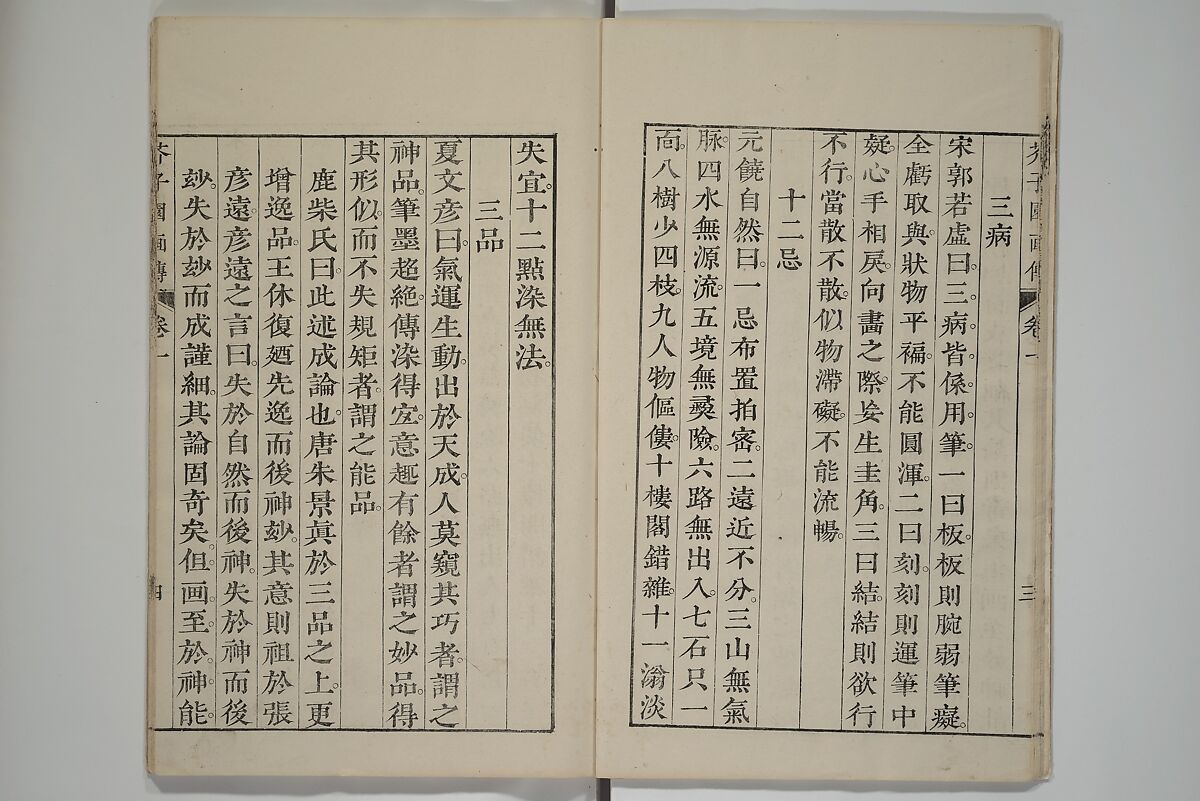 三病
宋郭若虛曰。三病。皆係用筆。一曰板。板則腕弱筆癡。
全虧取與。狀物平褊。不能圓渾。二曰刻。刻則運筆中
疑。心手相戾。向畫之際。妄生圭角。三曰結。結則欲行
不行。當散不散。似物滯礙。不能流暢。
十二忌
元饒自然曰。一忌布置拍密。二遠近不分。三山無氣
脉。四水無源流。五境無夷險。六路無出入。七石只一
面。八樹少四枝。九人物傴僂。十樓閣錯雜。十一滃淡
芥子園画傳 卷一 三
失宜。十二點染無法。
三品
夏文彥曰。氣運生動。出於天成。人莫窺其巧者。謂之
神品。筆墨超絶。傳染得宐。意趣有餘者。謂之妙品。得
其形似。而不失規矩者。謂之能品。
鹿柴氏曰。此述成論也。唐朱景眞於三品之上。更
增逸品。王休復廼先逸而後神玅。其意則祖於張
彥遠。彥遠之言曰。失於自然而後神。失於神而後
玅。失於玅而成謹細。其論固奇矣。但画至於神能。
芥子園画傳 卷一 四